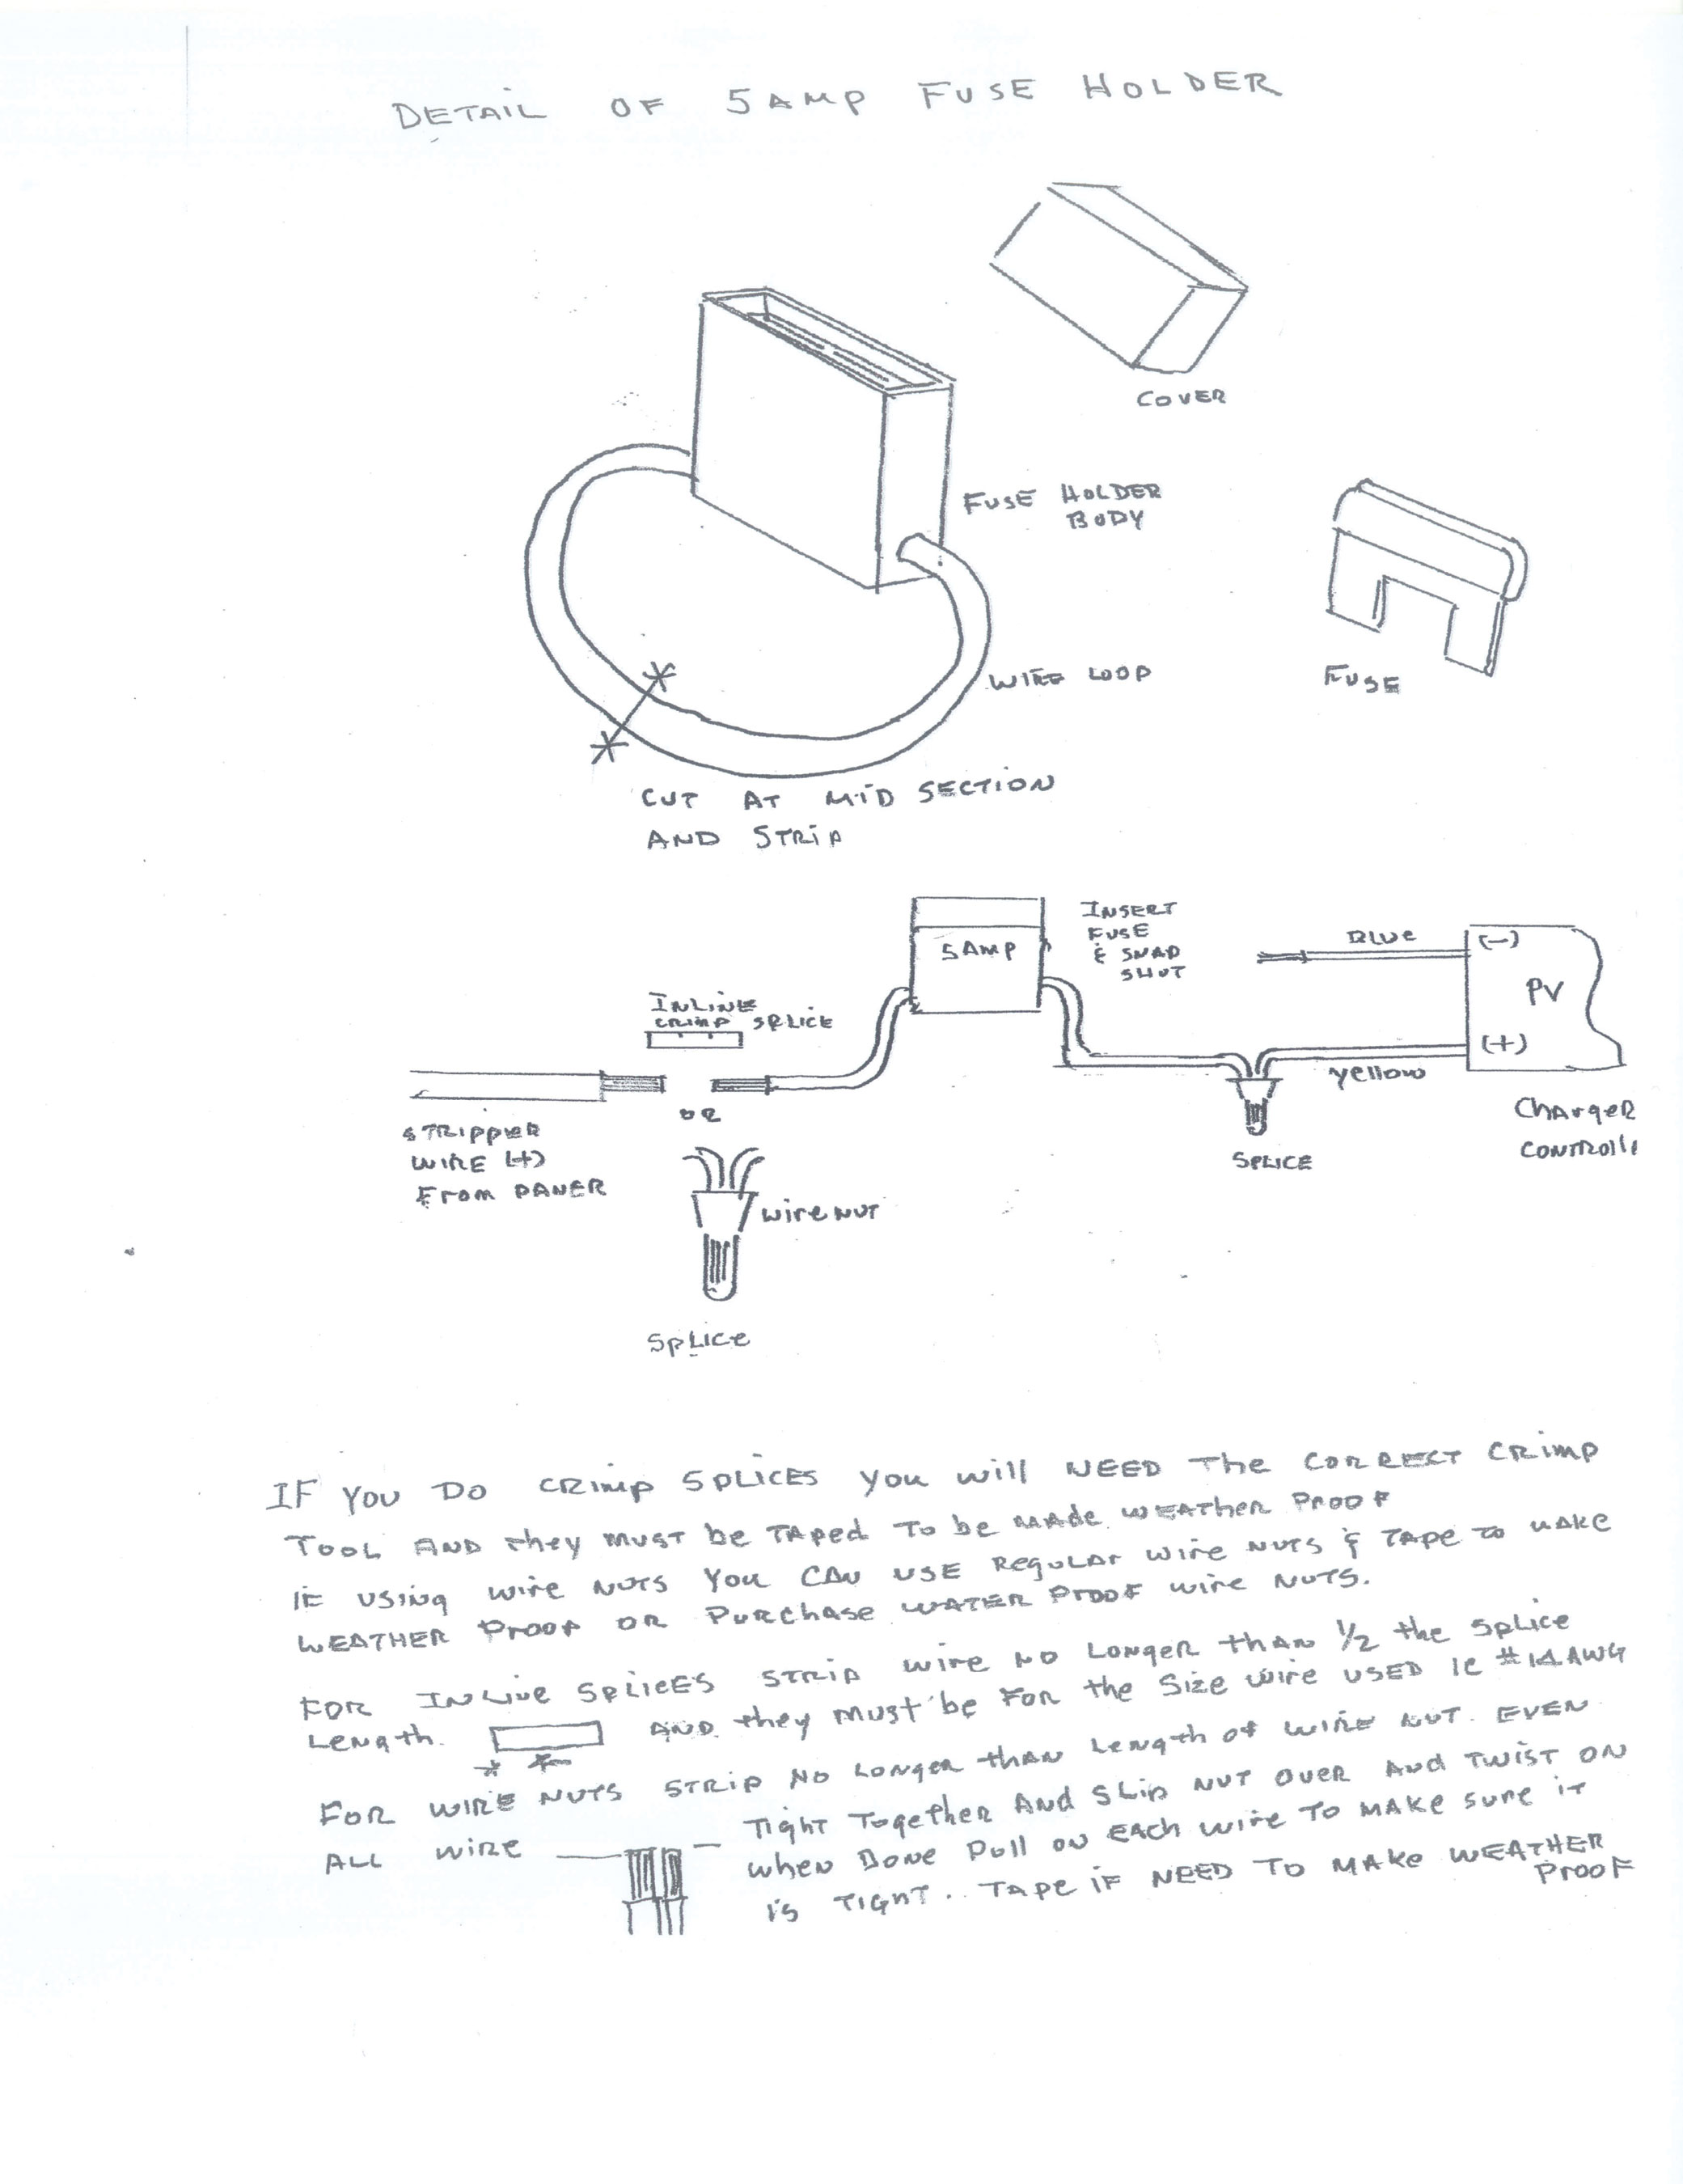 DETAIL OF 5 AMP FUSE HOLDER
COVER
FUSE HOLDER
BODY
FUSE
WIRE LOOP
CUT AT MID SECTION
AND STRIP
INSERT
FUSE
& SNAP
SHUT
5 AMP
BLUE
(-)
PV
(+)
yellow
INLINE
CRIMP SPLICE
OR
STRIPPER
WIRE (+)
From PANER
wire NUT
SPLICE
SPLICE
CHARGER
CONTROLL
IF YOU DO CRIMP SPLICES you will NEED The CORRECT CRIMP
TOOL AND they MUST be TAPED TO be MADE WEATHER PROOF
IF USING wire NUTS YOU CAN USE REGULAR wire NUTS & TAPE TO MAKE
WEATHER PROOF OR PURCHASE WATER PROOF wire NUTS.
FOR INLINE SPLICES STRIP wire NO LONGER than 1/2 the SPLICE
LENGTH. AND they must be FOR the Size wire USED IE #14 AWG
FOR WIRE NUTS STRIP NO LONGER than LENGTH of WIRE NUT. EVEN
ALL wire — TIGHT TOGETHER AND SLIP NUT OVER AND TWIST ON
when DONE PULL ON EACH wire TO MAKE SURE iT
is TIGHT.. TAPE IF NEED TO MAKE WEATHER
PROOF